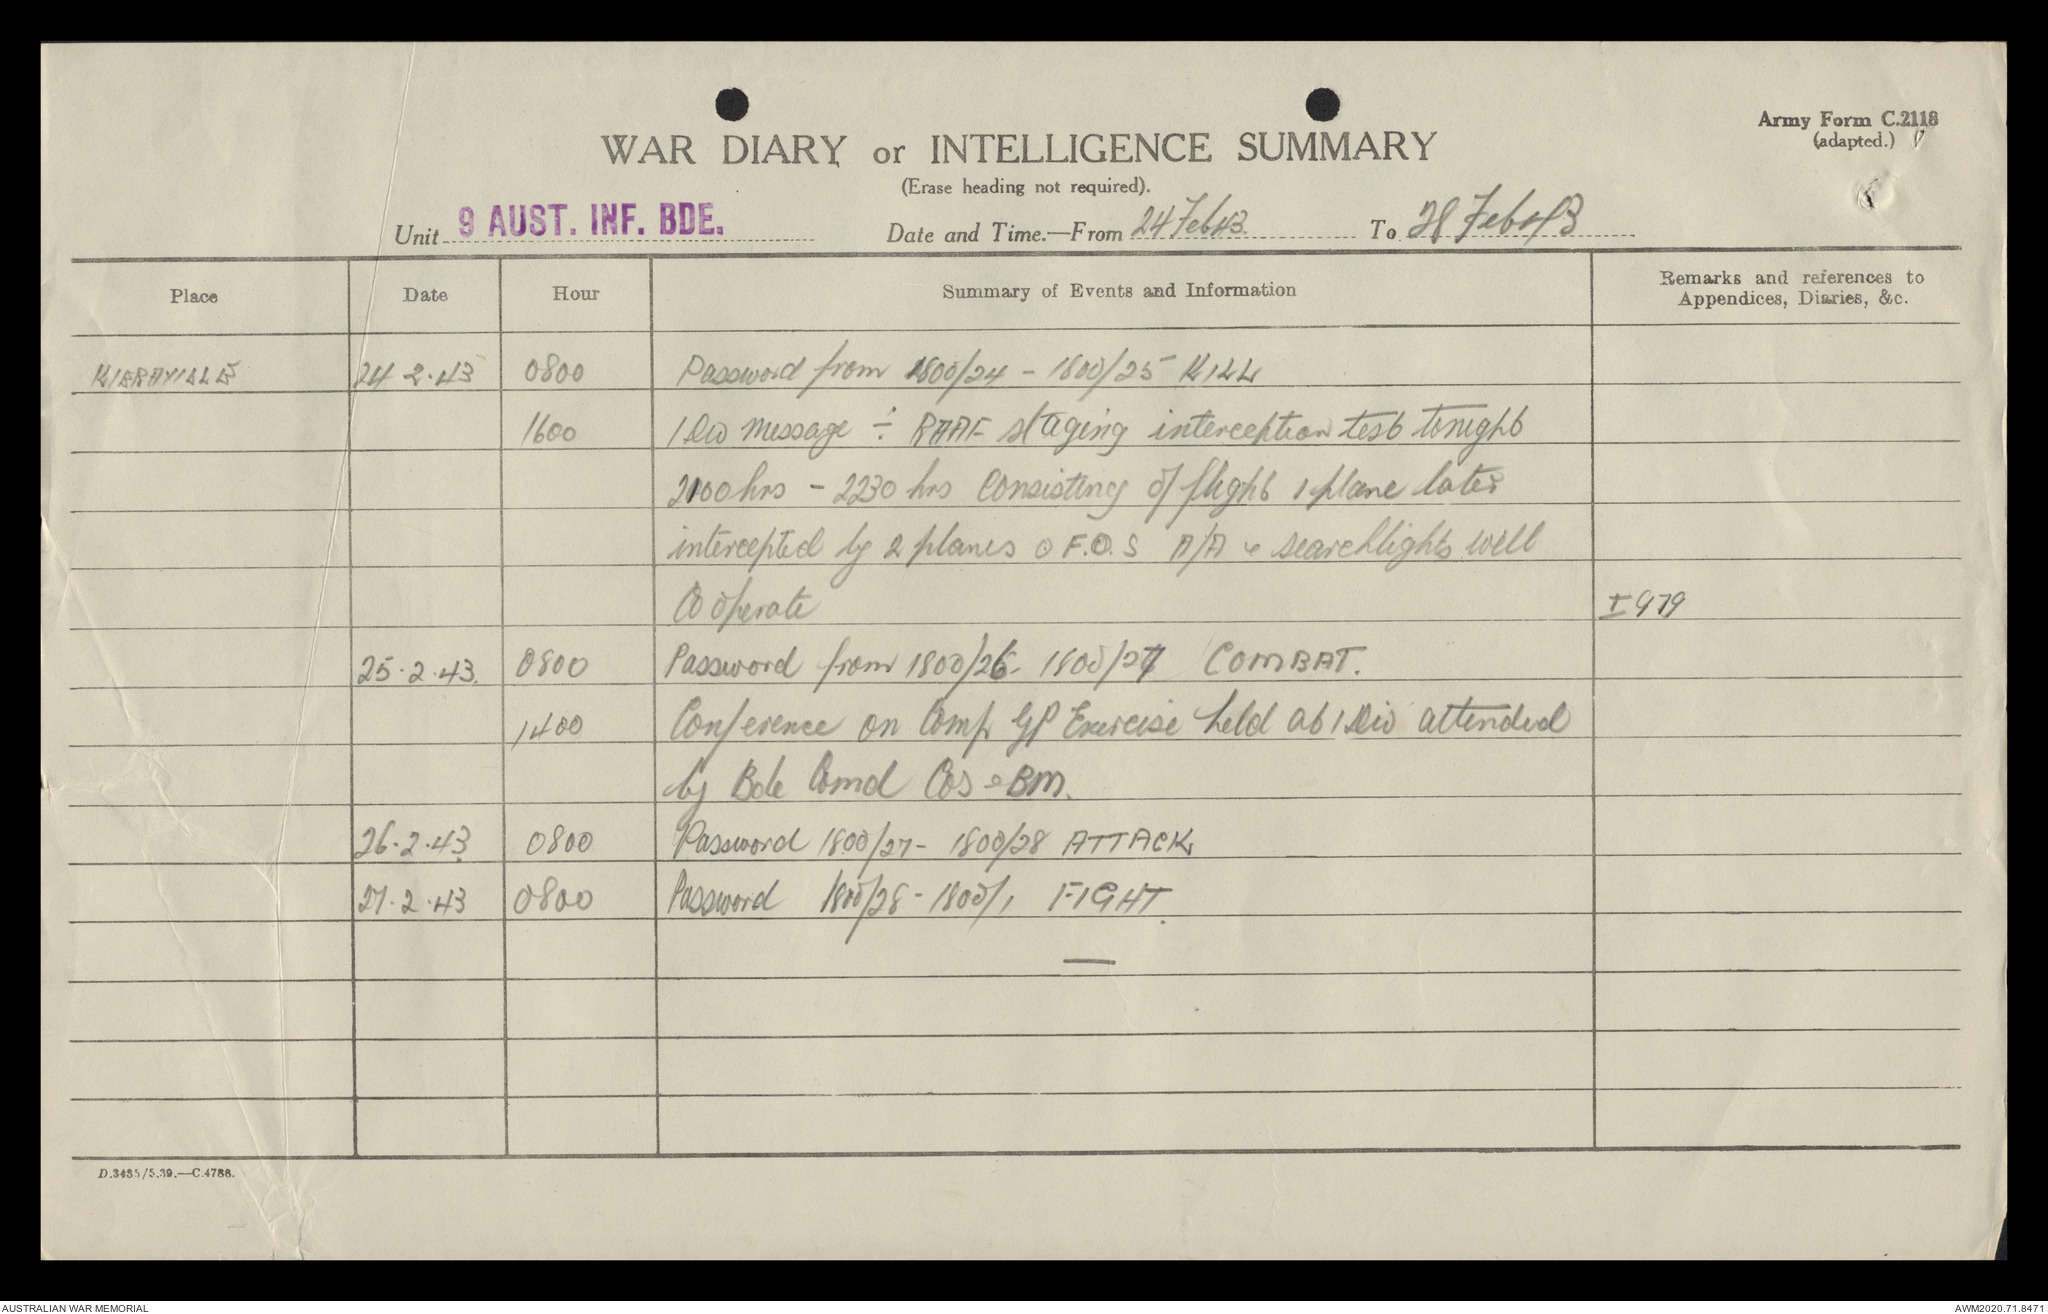 Army Form C.2118
(adapted.)
WAR DIARY or INTELLIGENCE SUMMARY
(Erase heading not required).
Unit 9 AUST. INF. BDE. Date and Time.—From 24 Feb 43. To 28 Feb 43
Place Date Hour Summary of Events and Information Remarks and references to
Appendices, Diaries, &c.
24 2.43 0800 Password from 1800/24 - 1800/25 KILL
1600 1 Div Message ÷ RAAF staging interception test tonight
2100 hrs - 2230 hrs Consisting of flight 1 plane later
intercepted by 2 planes F.O.S A/A & searchlights will
Co operate I 979
25.2.43. 0800 Password from 1800/26- 1800/27 COMBAT.
1400 Conference on Comp GP Exercise held at 1 Div attended
by Bde Comd COs & BM.
26.2.43 0800 Password 1800/27 - 1800/28 ATTACK
27.2.43 0800 Password 1800/28 - 1800/1 FIGHT.
D.3485/5.39.—C.4788.
AUSTRALIAN WAR MEMORIAL AWM2020.71.8471